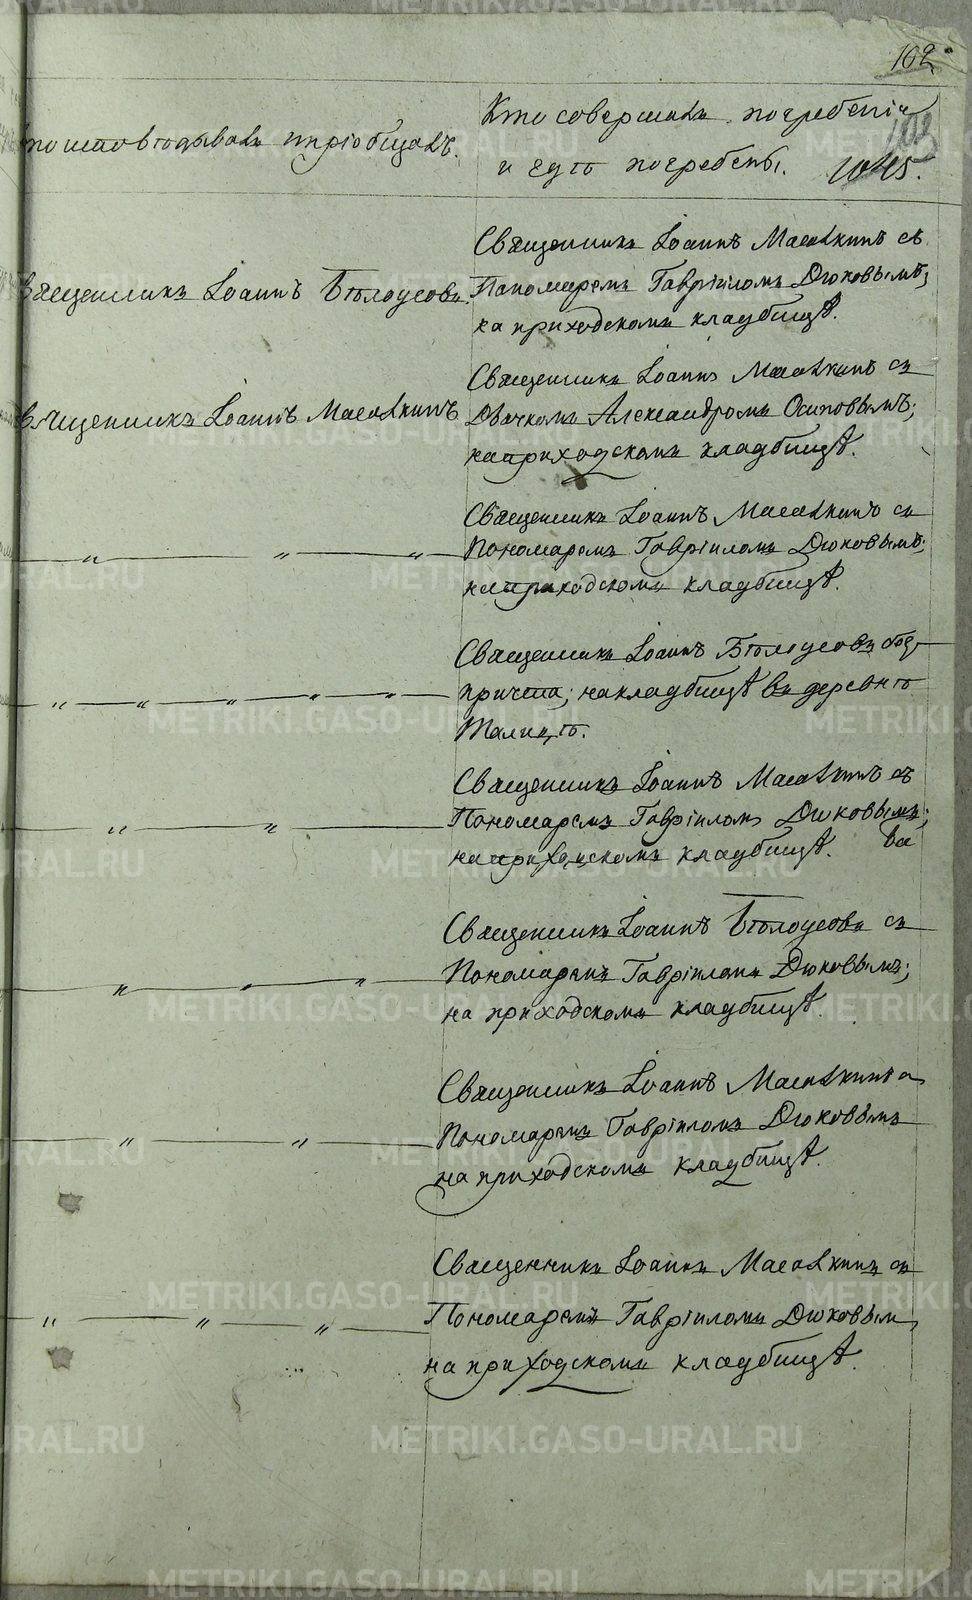 102
Кто совершалъ погребеніе
исповѣдывалъ и пріобщалъ.
и гдѣ погребены. 1045.
Священникъ Іоаннъ Масалкинъ съ
Священникъ Іоаннъ Бѣлоусовъ. Пономаремъ Гавріиломъ Дюковымъ;
на приходскомъ кладбищѣ.
Священникъ Іоаннъ Масалкинъ съ
Священникъ Іоаннъ Масалкинъ Дьячкомъ Александромъ Осиповымъ;
на приходскомъ кладбищѣ.
Священникъ Іоаннъ Масалкинъ съ
— „ — „ — „ — Пономаремъ Гавріиломъ Дюковымъ;
на приходскомъ кладбищѣ.
Священникъ Іоаннъ Бѣлоусовъ безъ
— „ — „ — „ — „ — „ — причта; на кладбищѣ въ деревнѣ
Талицѣ.
Священникъ Іоаннъ Масалкинъ съ
— „ — „ — Пономаремъ Гавріиломъ Дюковымъ;
на приходскомъ кладбищѣ.
Священникъ Іоаннъ Бѣлоусовъ съ
— „ — „ — „ — Пономаремъ Гавріиломъ Дюковымъ;
на приходскомъ кладбищѣ.
Священникъ Іоаннъ Масалкинъ съ
— „ — „ — Пономаремъ Гавріиломъ Дюковымъ
на приходскомъ кладбищѣ.
Священникъ Іоаннъ Масалкинъ съ
— „ — „ — „ — Пономаремъ Гавріиломъ Дюковым,
на приходскомъ кладбищѣ.
METRIKI.GASO-URAL.RU